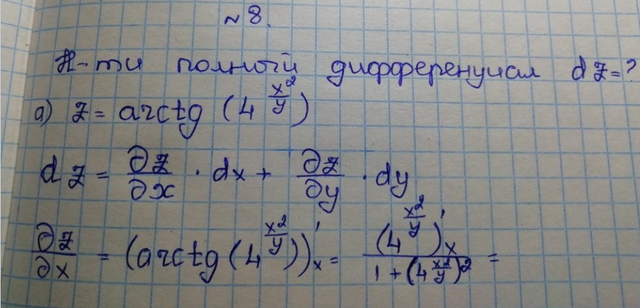 № 8.
Н-ти полный дифференциал dz=?
а) z = arctg (4^(x²/y))
dz = ∂z/∂x · dx + ∂z/∂y · dy
∂z/∂x = (arctg (4^(x²/y)))'ₓ = (4^(x²/y))'ₓ / (1 + (4^(x²/y))²) =